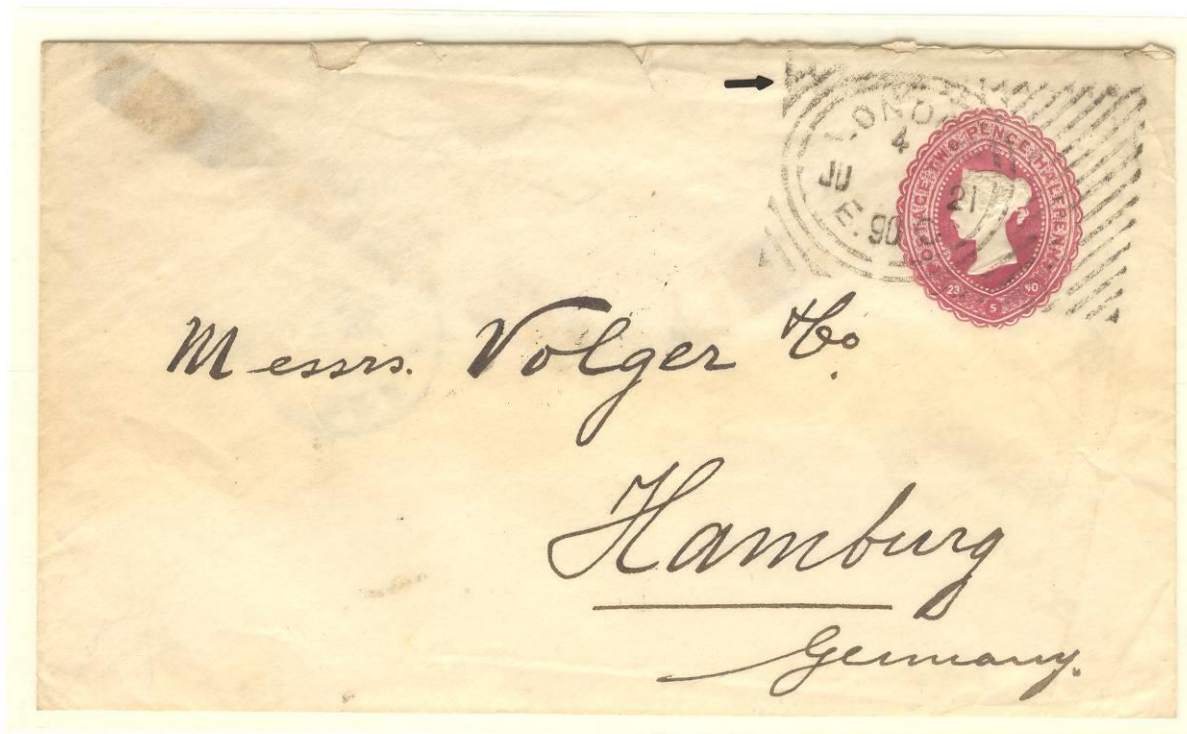 LONDO
4
JU 21
E. 90
POSTAGE TWO PENCE HALFPENNY
23 5 90
Messrs. Volger & Co.
Hamburg
Germany.